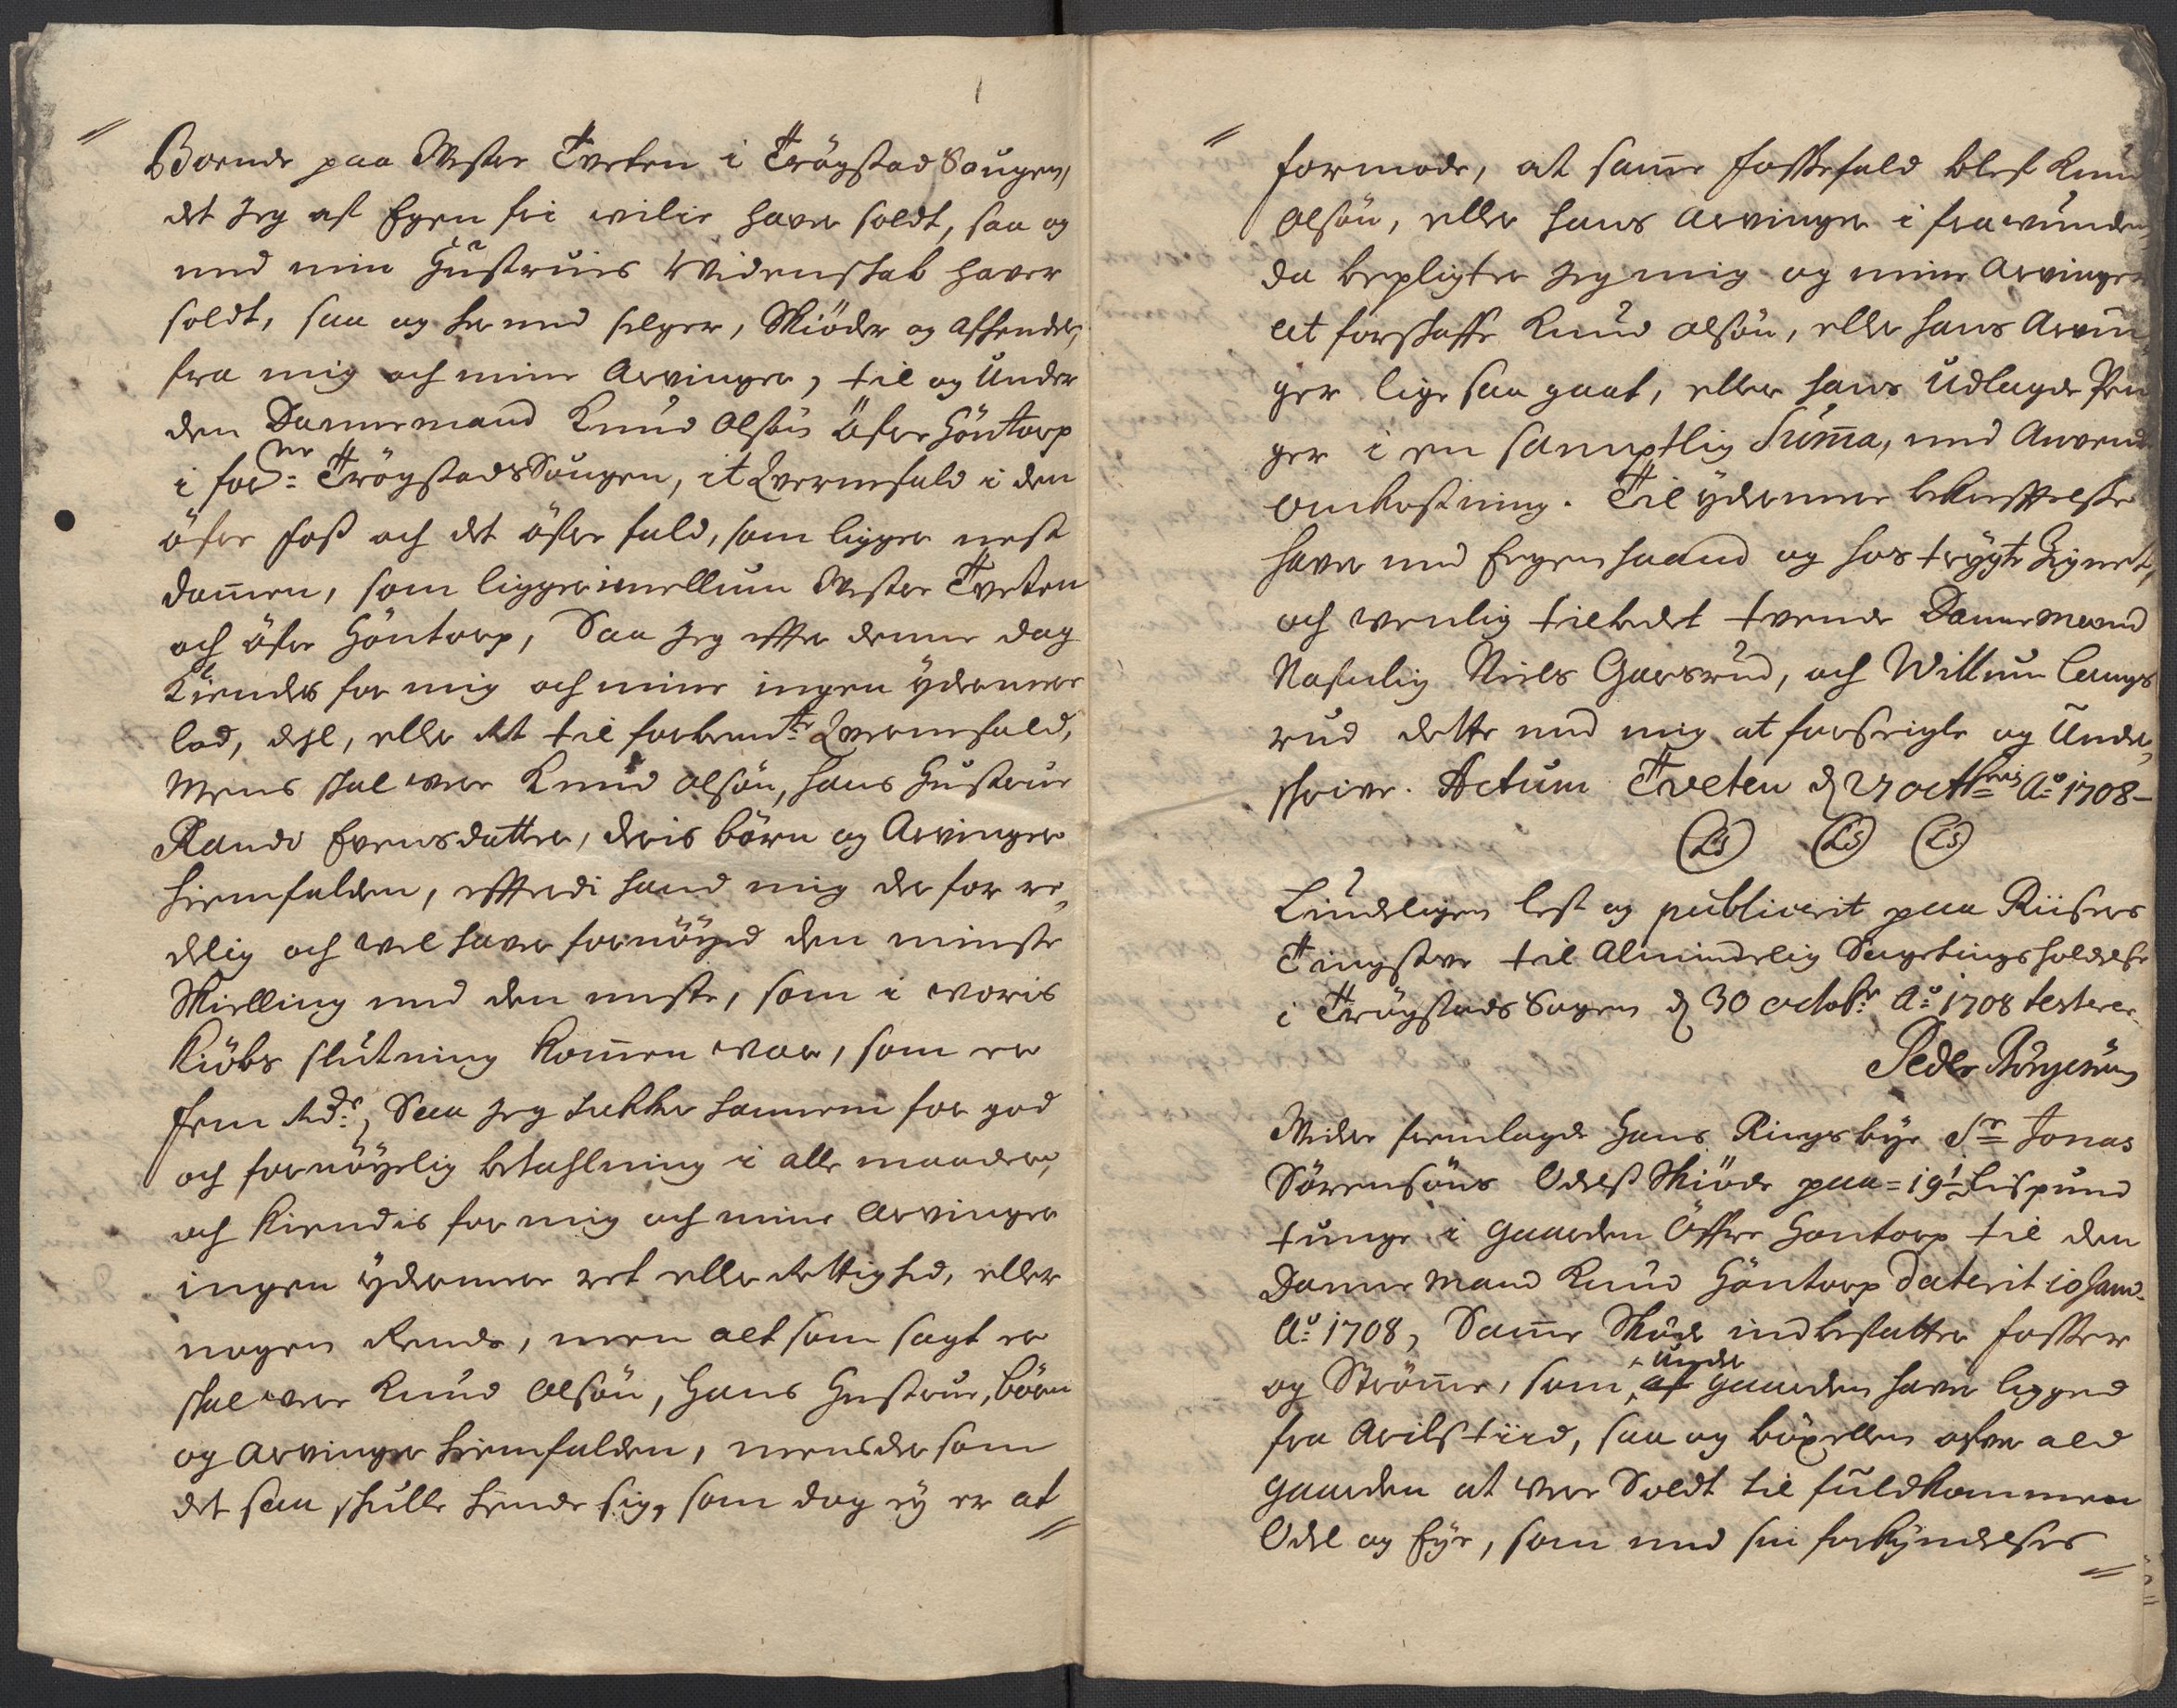 Boende paa Wester Tveten i Trøgstad Sougen,
det Jeg af Egen fri wilie haver soldt, saa og
med min Hustruis Widenskab haver
soldt, saa og her med selger, Skiøder og afhender,
fra mig och mine Arvinger, til og Under
den Dannemand Knud Olsøn Øfre Høntorp
i forne: Trøgstads Sougen, it Qvernefald i den
øfre foss och det øfre fald, som ligger nest
dammen, som ligger imellum Wester Tveten
och øfre Høntorp, Saa Jeg effter denne dag
Kiendes for mig och mine ingen ydermere
lod, deel, eller ret til forbemte: Qvernefald,
Mens skal were Knud Olsøn, hans Hustrue
Rande Evensdatter, deris børn og Arvinger
hiemfalden, efftterdi hand mig der for re,
delig och wel haver fornøyed den minste
Skielling med den meste, som i woris
Kiøbs slutning kommen war, som er
fem rdr:, Saa Jeg takker hannem for god
och fornøyelig betahlning i alle maader,
och kiendis for mig och mine Arvinger
ingen ydermere ret eller rettighed, eller
nogen rende, men alt som sagt er
skal were Knud Olsøn, Hans Hustrue, børn
og Arvinger hiemfalden, mens der som
det saa skulle hende sig, som dog ey er at
formode, at samme fossefald blef Knud
Olsøn, eller hans Arvinger i frawunden,
da bepligter Jeg mig og mine Arvinger
at forskaffe Knud Olsøn, eller hans Arvin
ger lige saa gaat, eller hans Udlagde Pen
ger i en samptlig Summa, med Anvendt
omkostning. Til ydermere bekrefftelse
haver med Eegen haand og hos trygte Zignet,
och wenlig tilbedet tvende Dannemænd
Nafnlig Niels Garsrud, och Willum Langs
rud dette med mig at forseigle og Under,
skrive. Actum Tveten d 27 octbris Ao 1708-
LS LS LS
Lindeligen lest og publicerit paa Riisers
Tingstue til Almindelig Sagetings holdelse
i Trøgstads Sogen d 30 octobr: Ao: 1708 testerer
Peder Børgesøn
Wider fremlagde Hans Ringsbye Sr Jonas
Sørensøns Odelss Skiøde paa = 19½ Lispund
tunge i gaarden Øffre Hontorp til den
Danne Mand Knud Høntorp daterit 10 Janv.
Ao: 1708, Samme Skiøde indbefatter fosser
og Strømme, som af under gaarden haver ligged
fra Arilstiid, saa og bøxellen ofver ald
gaarden at were Soldt til fuldkommen
Odel og Eye, som med sin forkyndelses